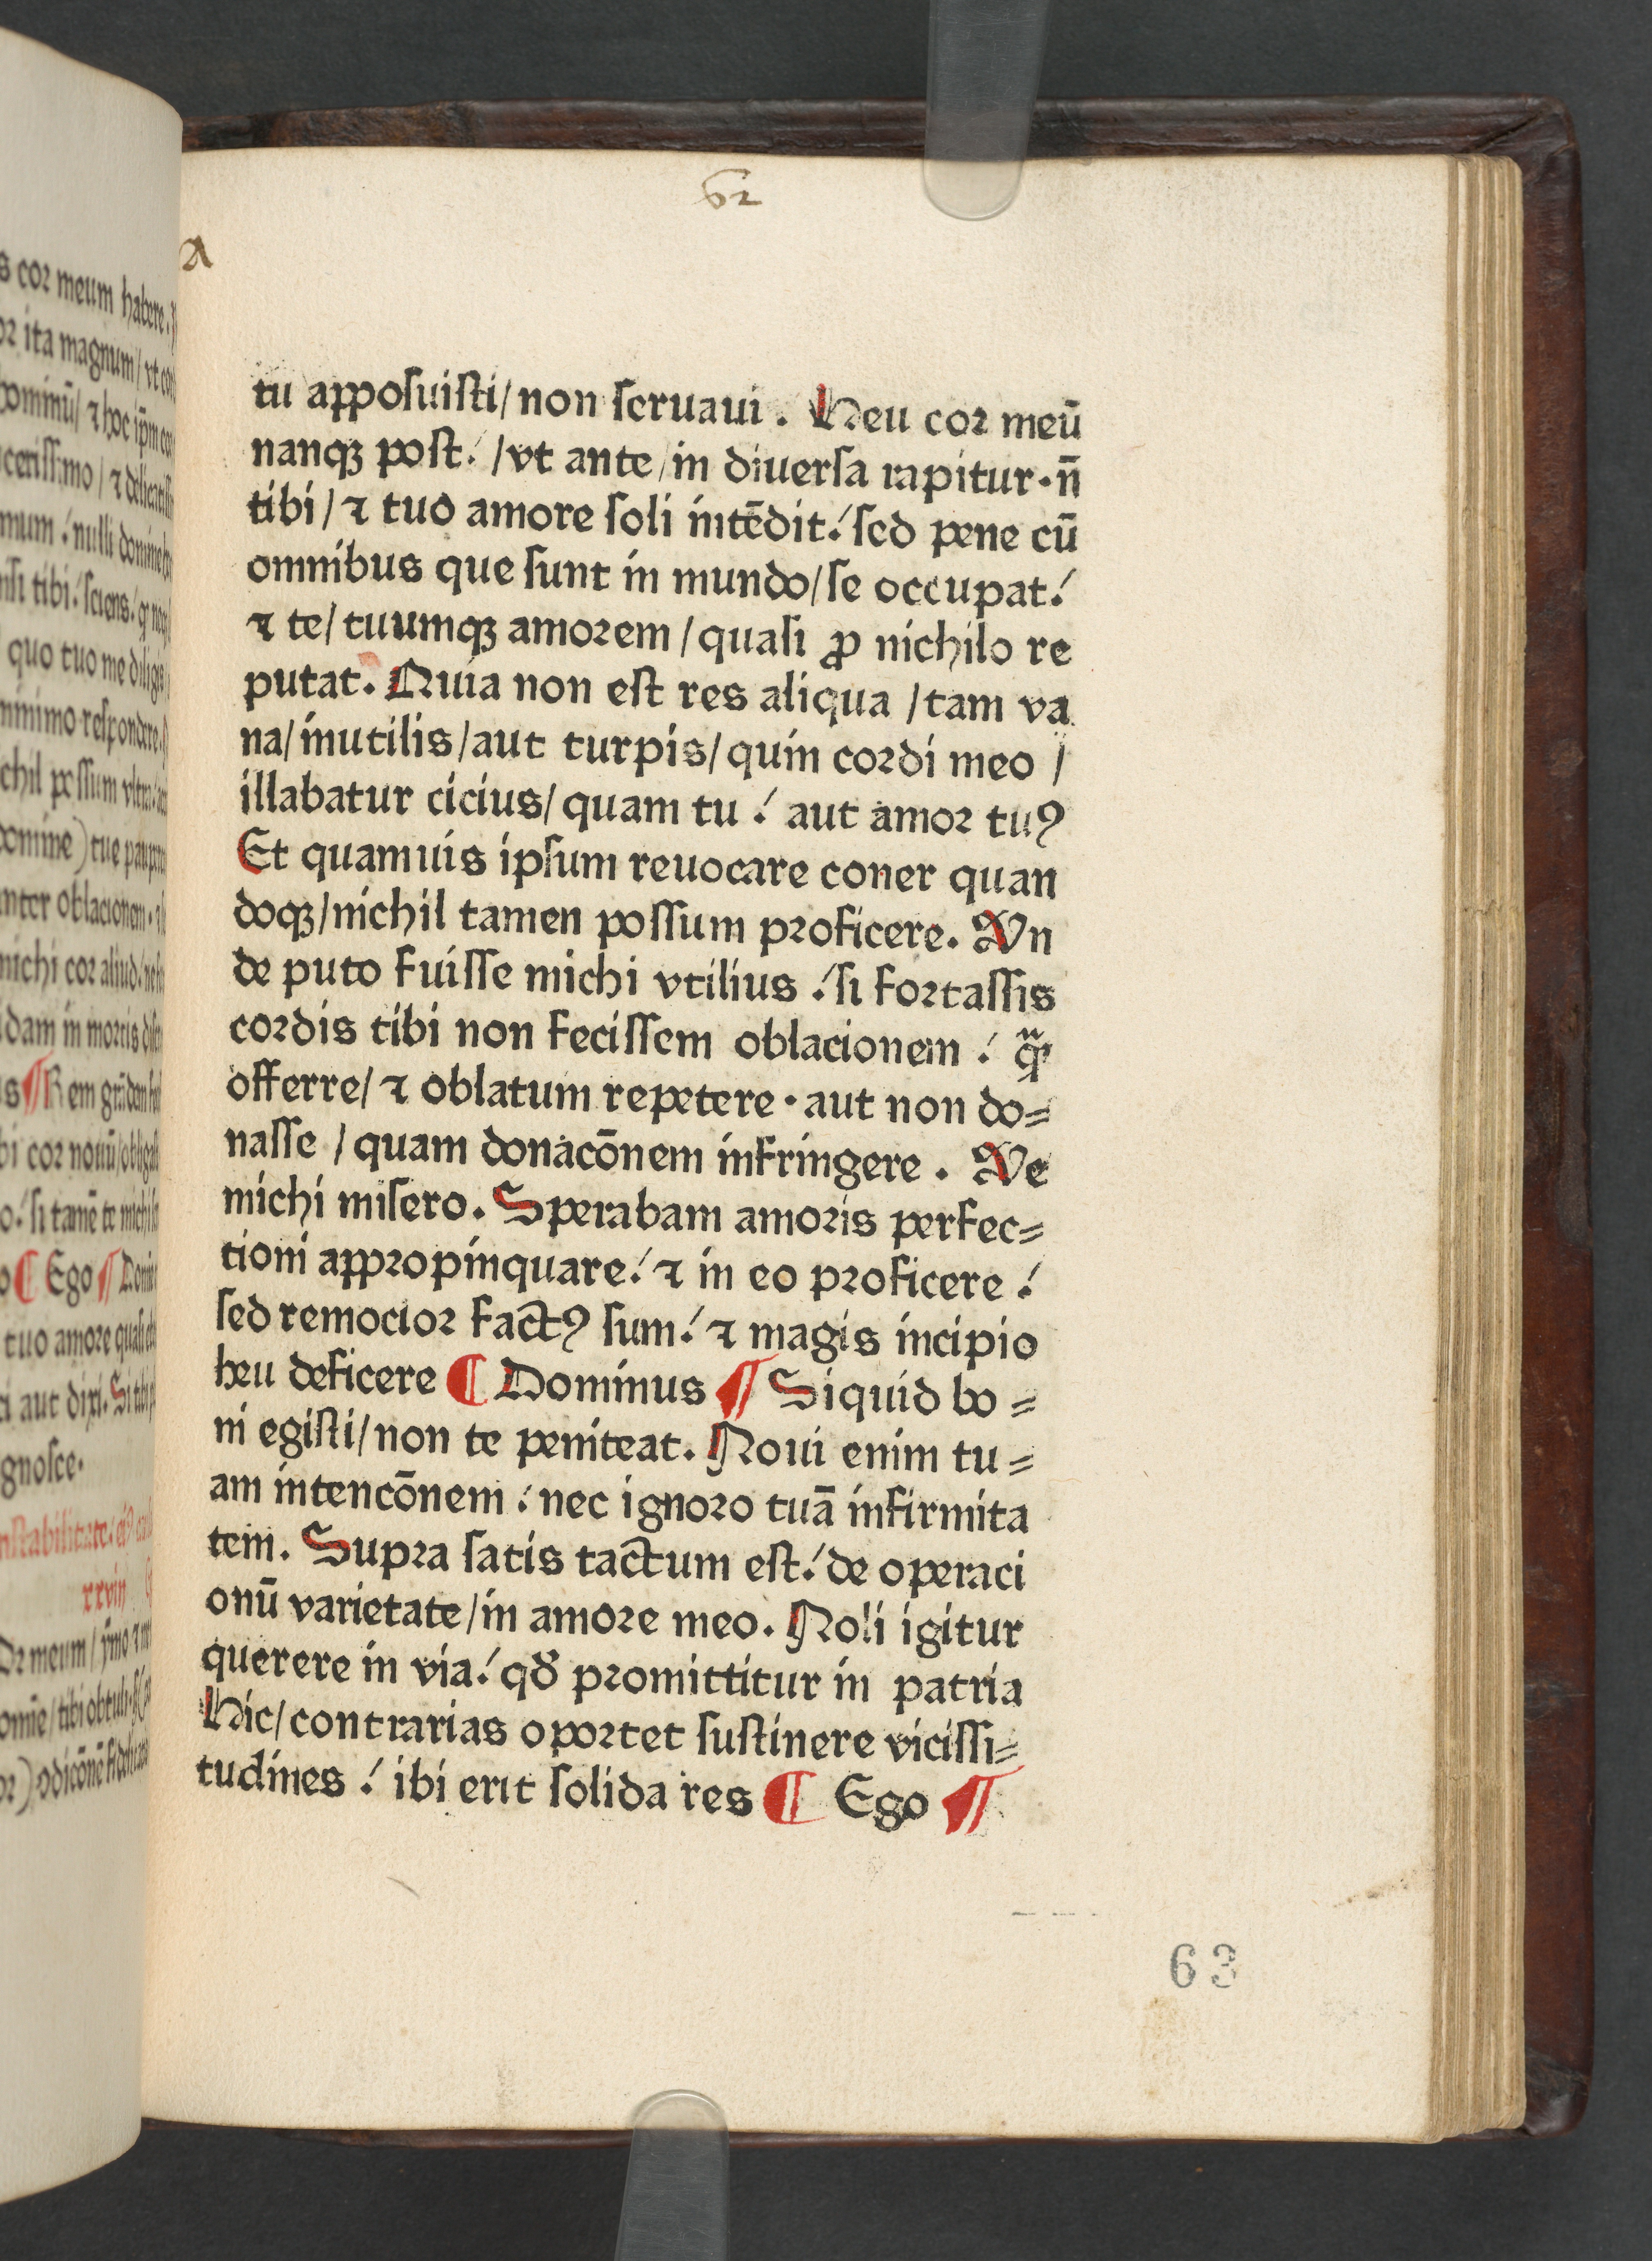 62
a
tu apposuisti/non seruaui. Heu cor meū
nanqꝫ post./vt ante/in diuersa rapitur·n̄
tibi/⁊ tuo amore soli intēdit./sed pene cū
omnibus que sunt in mundo/se occupat./
⁊ te/tuumqꝫ amorem/quasi ꝓ nichilo re
putat. Quia non est res aliqua/tam va
na/inutilis/aut turpis/quin cordi meo/
illabatur cicius/quam tu./ aut amor tuꝰ
Et quamuis ipsum reuocare coner quan
doqꝫ/nichil tamen possum proficere. Vn
de puto fuisse michi vtilius./si fortassis
cordis tibi non fecissem oblacionem./
offerre/⁊ oblatum repetere·aut non do=
nasse/quam donacōnem infringere. Ve
michi misero. Sperabam amoris perfec=
tioni appropinquare./⁊ in eo proficere./
sed remocior factꝰ sum./⁊ magis incipio
heu deficere ¶ Dominus ¶ Siquid bo=
ni egisti/non te peniteat. Noui enim tu=
am intencōnem./nec ignoro tuā infirmita
tem. Supra satis tactum est./de operaci
onū varietate/in amore meo. Noli igitur
querere in via./qď promittitur in patria
Hic/contrarias oportet sustinere vicissi=
tudines./ibi erit solida res ¶ Ego ¶
63
s cor meum habere.
ita magnum/vt
mum./nulli
quo tuo me
minimo·respondere.
nichi cor aliud
dam in mortis
Ego ¶
tuo amore quasi
aut dixi. Si
gnosce·